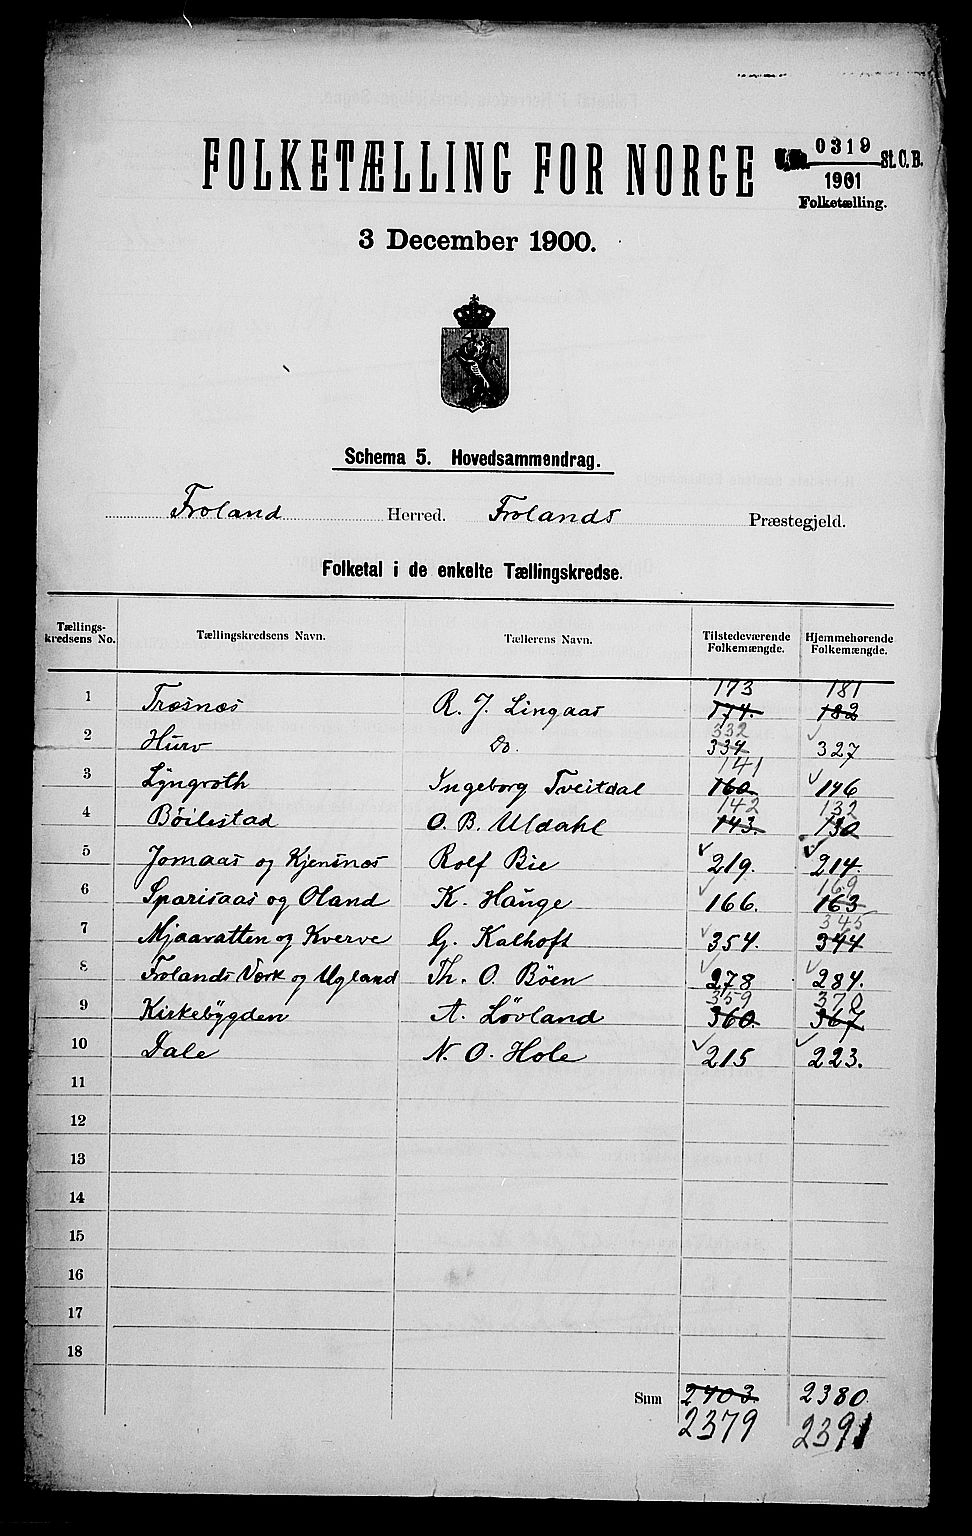 0319
St. C. B.
1901
Folketælling.
FOLKETÆLLING FOR NORGE
3 December 1900.
Schema 5. Hovedsammendrag.
Froland Herred. Frolands Præstegjeld.
Folketal i de enkelte Tællingskredse.
Tællings-kredsens No. Tællingskredsens Navn. Tællerens Navn. Tilstedeværende Folkemængde. Hjemmehørende Folkemængde.
173 181
1 Træsnæs R. J. Lingaas 174. 182
332
2 Hurv Do. 334 327
141
3 Lyngroth Ingeborg Tveitdal 160. 146
142 132
4 Böilestad O. B. Uldahl 143. 130
5 Jomaas og Kjensnæs Rolf Bie 219. 214.
169
6 Sparisaas og Oland K. Hauge 166. 163
345
7 Mjaavatten og Kverve G. Kalhoft 354. 344
8 Frolands Værk og Ugland Th. O. Böen 278 284.
359 370
9 Kirkebygden A. Løvland 360. 367
10 Dale N. O. Hole 215 223.
11
12
13
14
15
16
17
18
Sum 2403 2380
2379 2391